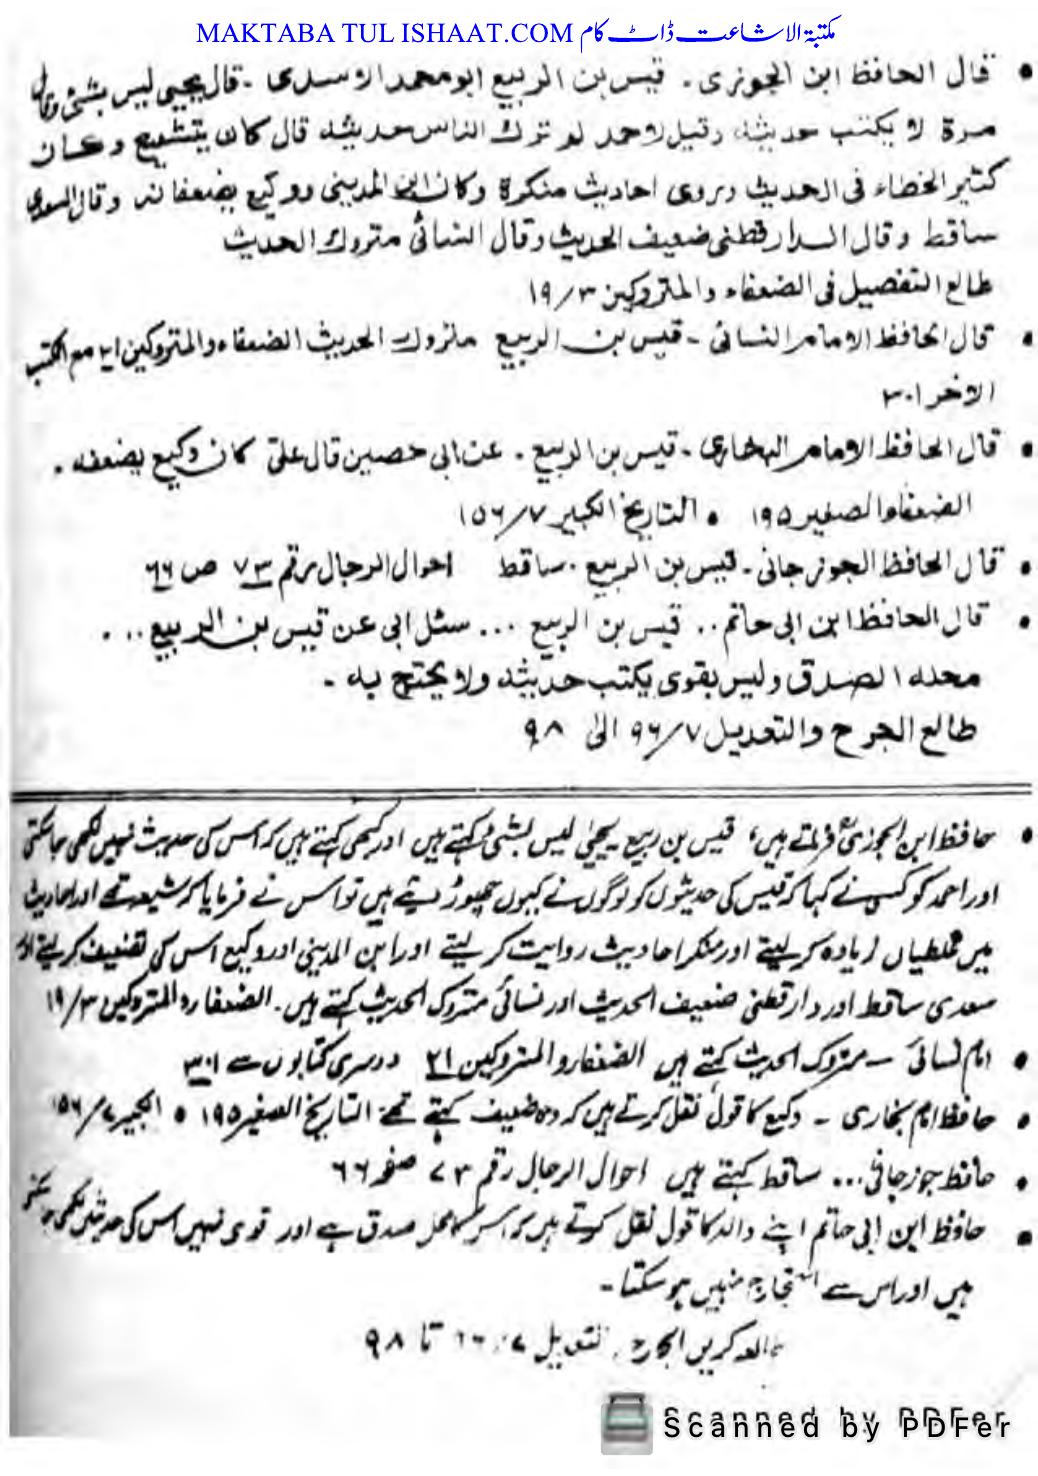 MAKTABA TUL ISHAAT.COM مکتبۃ الاشاعت ڈاٹ کام
• قال الحافظ ابن الجوزی۔ قیس بن الربیع ابو محمد الاسدی ۔ قال یحیی لیس بشئ وقال
مرة لا یکتب حدیثہ وقیل لاحمد لم ترك الناس حدیثہ قال کان یتشیع وکان
کثیر الخطاء فی الحدیث وروی احادیث منکرة وکان ابن المدینی ووکیع یضعفانہ وقال السعدی
ساقط وقال الدارقطنی ضعیف الحدیث وقال النسائی متروك الحدیث
طالع التفصیل فی الضعفاء والمتروکین ۱۹/۳
• قال الحافظ الامام النسائی ۔ قیس بن الربیع متروك الحدیث الضعفاء والمتروکین مع الکتب
الاخر ۳۰۱
• قال الحافظ الامام البخاری ۔ قیس بن الربیع ۔ عن ابی حصین قال علی کان وکیع یضعفہ ۔
الضعفاء الصغیر ۱۹۵ • التاریخ الکبیر ۱۵۶/۷
• قال الحافظ الجوزجانی ۔ قیس بن الربیع ۔ ساقط احوال الرجال رقم ۷۳ ص ۶۶
• قال الحافظ ابن ابی حاتم .. قیس بن الربیع ... سئل ابی عن قیس بن الربیع ...
محلہ الصدق ولیس بقوی یکتب حدیثہ ولا یحتج بہ ۔
طالع الجرح والتعدیل ۹۶/۷ الی ۹۸
• حافظ ابن الجوزیؒ فرماتے ہیں، قیس بن ربیع یحییٰ لیس بشئ کہتے ہیں اور کبھی کہتے ہیں کہ اس کی حدیث نہیں لکھی جا سکتی
اور احمد کو کسی نے کہا کہ قیس کی حدیثوں کو لوگوں نے کیوں چھوڑ دیتے ہیں تو اس نے فرمایا کہ شیعہ تھے اور احادیث
میں غلطیاں زیادہ کر لیتے اور منکر احادیث روایت کر لیتے اور ابن المدینی اور وکیع اس کی تضعیف کر لیتے اور
سعدی ساقط اور دارقطنی ضعیف الحدیث اور نسائی متروک الحدیث کہتے ہیں۔ الضعفاء والمتروکین ۱۹/۳
• امام نسائی — متروک الحدیث کہتے ہیں الضعفاء والمتروکین دوسری کتابوں سے ۳۰۱
• حافظ امام بخاری ۔ وکیع کا قول نقل کرتے ہیں کہ وہ ضعیف کہتے تھے التاریخ الصغیر ۱۹۵ • الکبیر ۱۵۶/۷
• حافظ جوزجانی ... ساقط کہتے ہیں احوال الرجال رقم ۷۳ صفحہ ۶۶
• حافظ ابن ابی حاتم اپنے والد کا قول نقل کرتے ہیں کہ اس کا محل صدق ہے اور قوی نہیں اس کی حدیثیں لکھی جا سکتی
ہیں اور اس سے احتجاج نہیں ہو سکتا۔
تا ۹۸
Scanned by PDFer